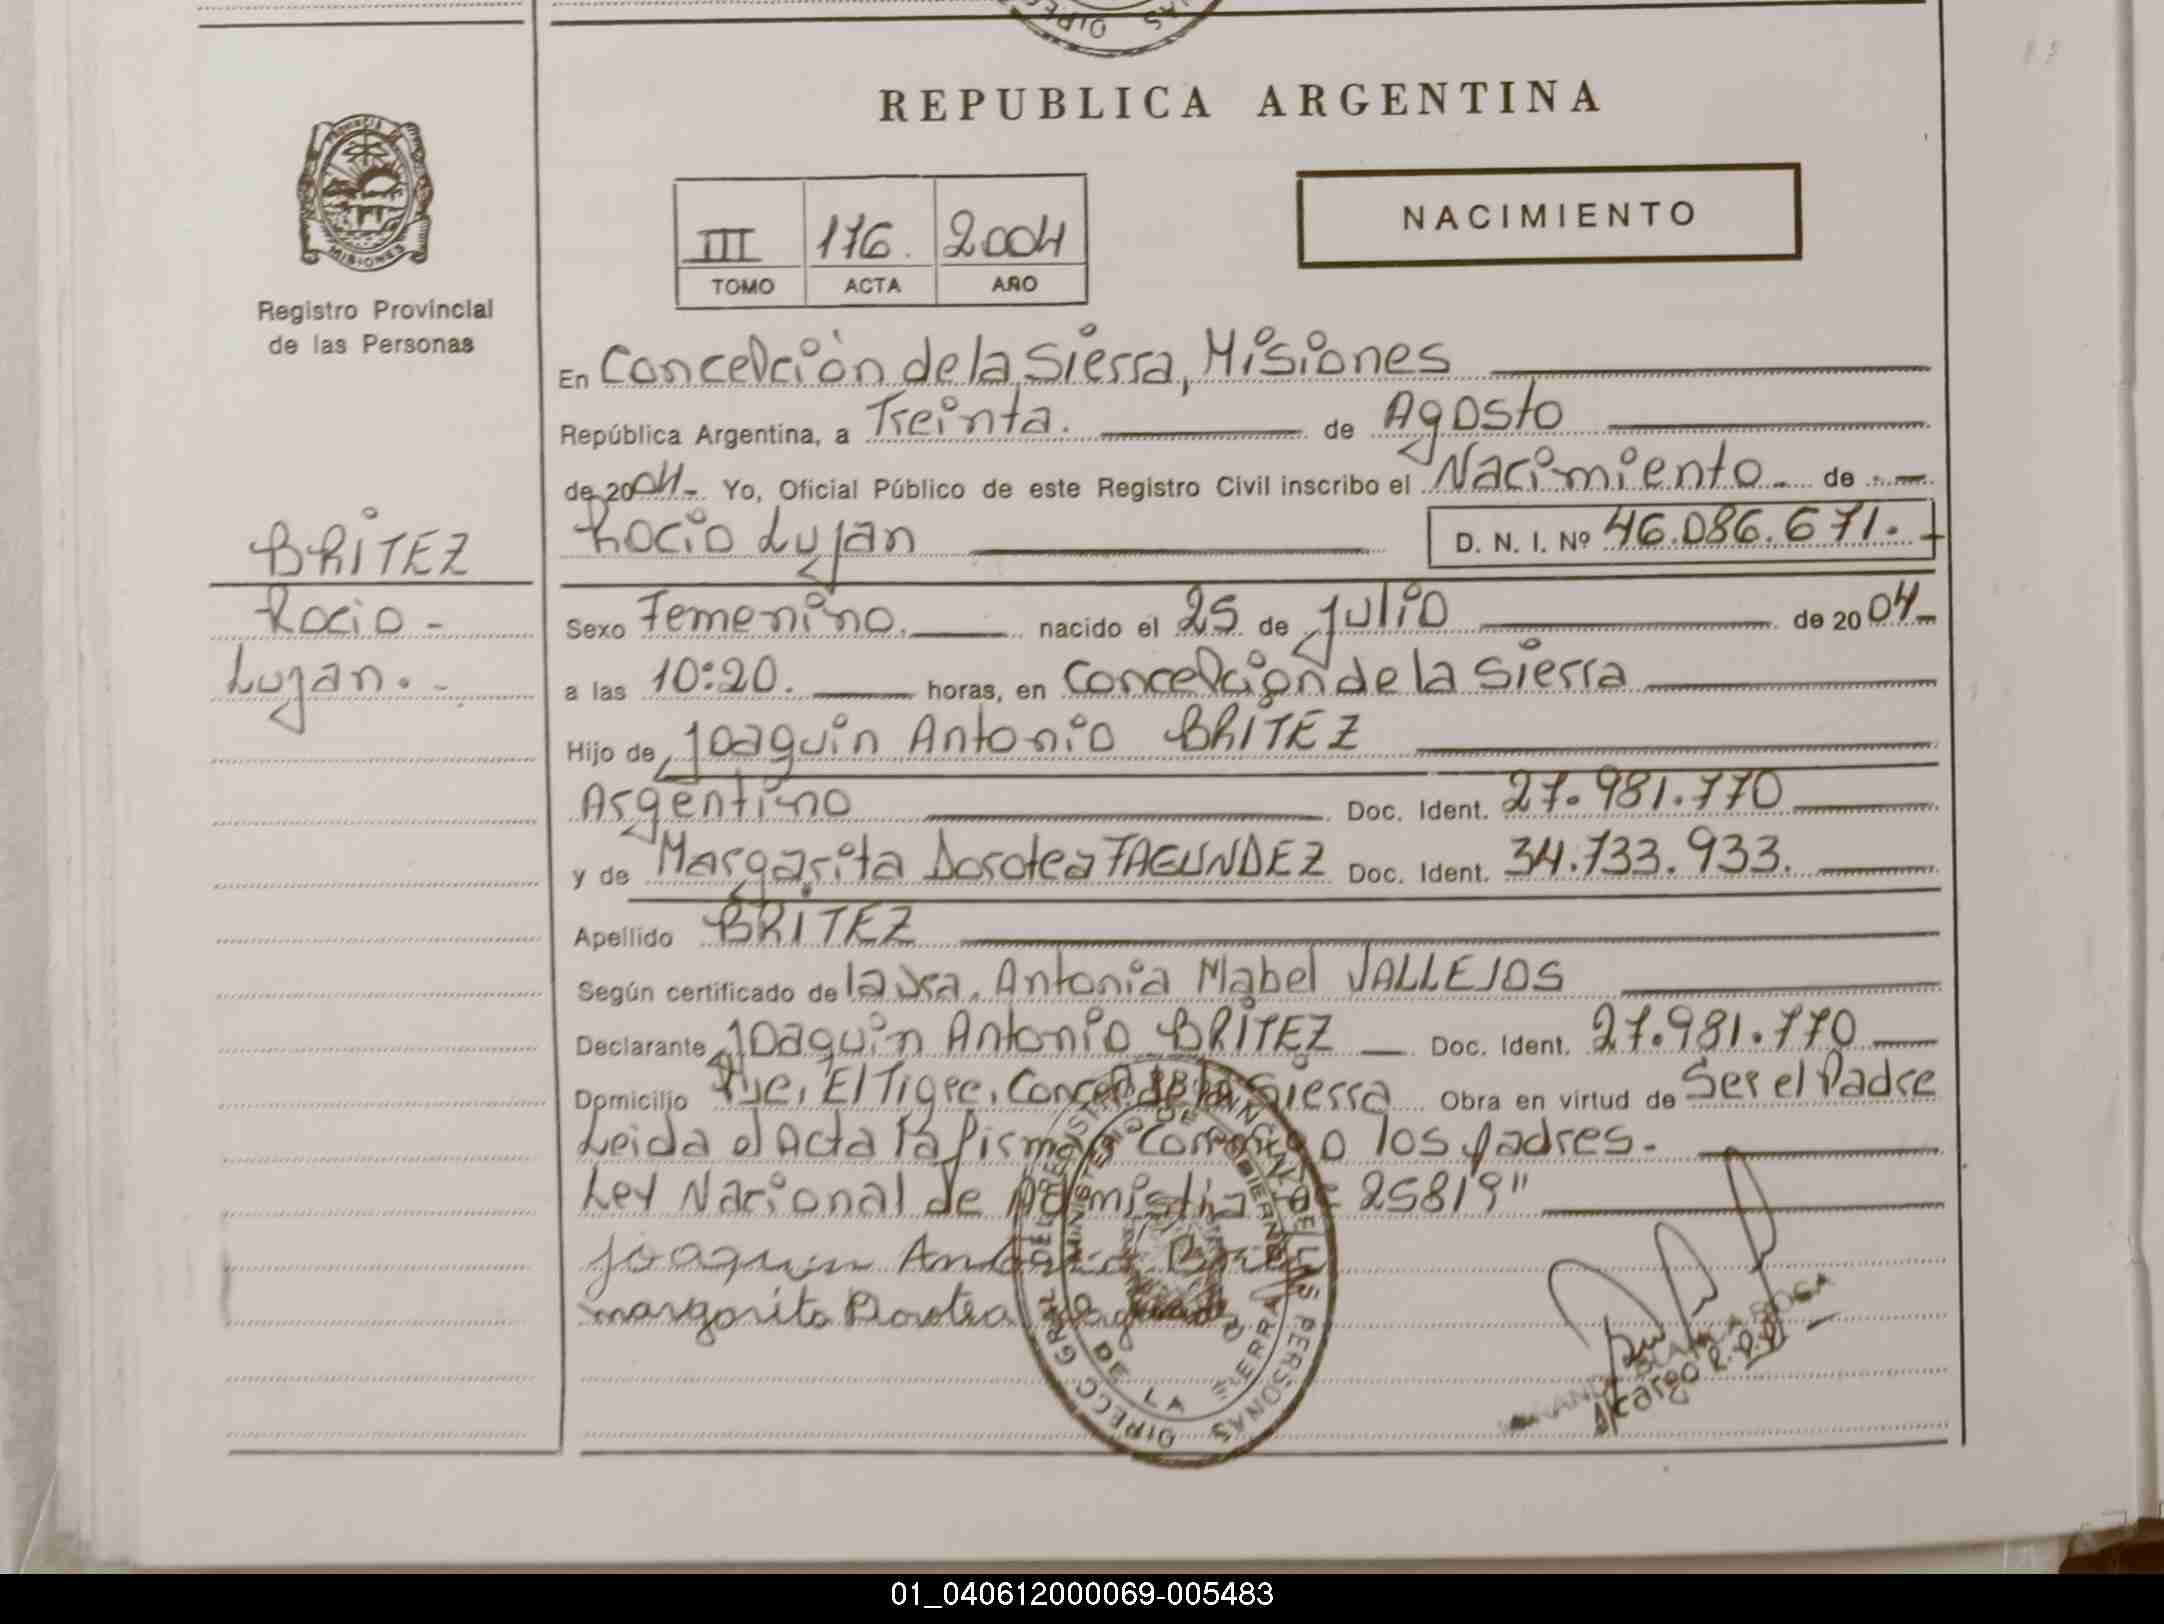 REPUBLICA ARGENTINA
NACIMIENTO
III 176. 2004
TOMO ACTA AÑO
PROVINCIA DE MISIONES
Registro Provincial
de las Personas
En Concepción de la Sierra, Misiones
República Argentina, a Treinta. de Agosto
de 2004- Yo, Oficial Público de este Registro Civil inscribo el Nacimiento de
BRITEZ
Rocio -
Lujan. -
Rocio Lujan D. N. I. Nº 46.086.671.
Sexo Femenino. nacido el 25 de Julio de 2004-
a las 10:20. horas, en Concepción de la Sierra
Hijo de Joaquin Antonio BRITEZ
Argentino Doc. Ident. 27.981.770
y de Margarita Dorotea FAGUNDEZ Doc. Ident. 34.733.933.
Apellido BRITEZ
Según certificado de la Dra. Antonia Mabel VALLEJOS
Declarante Joaquin Antonio BRITEZ Doc. Ident. 27.981.770
Domicilio El Tigre, Sierra Obra en virtud de Ser el Padre
Leida el Acta la firman los padres.-
Ley Nacional de 25819"
Joaquin
margarita Dorotea
DE LA SIERRA
A/cargo R.P.P.
01_040612000069-005483